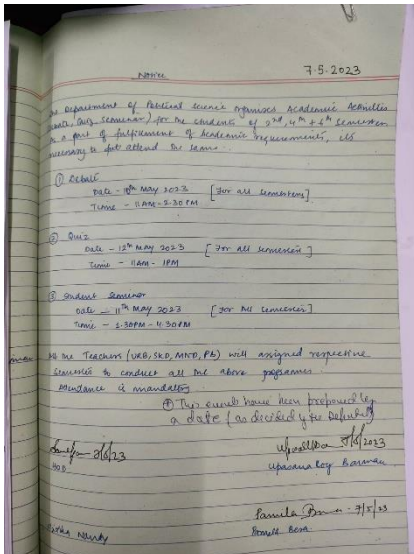 7.5.2023
Notice
Department of Political Science organises Academic Activities
Quiz, Seminar) for the students of 2nd, 4th & 6th Semester
a part of fulfilment of Academic requirements, its
necessary to attend the same.
① Debate
Date - May 2023 [For all semesters]
Time - 11AM - 2.30PM
② Quiz
Date - 12th May 2023 [For all semester]
Time - 11AM - 1PM
③ Student Seminar
Date - 11th May 2023 [For All semester]
Time - 2.30PM - 4.30PM
the Teachers (URB, SKD, MND, PB) will assigned respective
semester to conduct all the above programmes.
Attendance is mandatory
This events have been
a date (as decided by the
8/5/23
HOD
8/5/2023
Upasana Roy Barman
7/5/23
Nandy